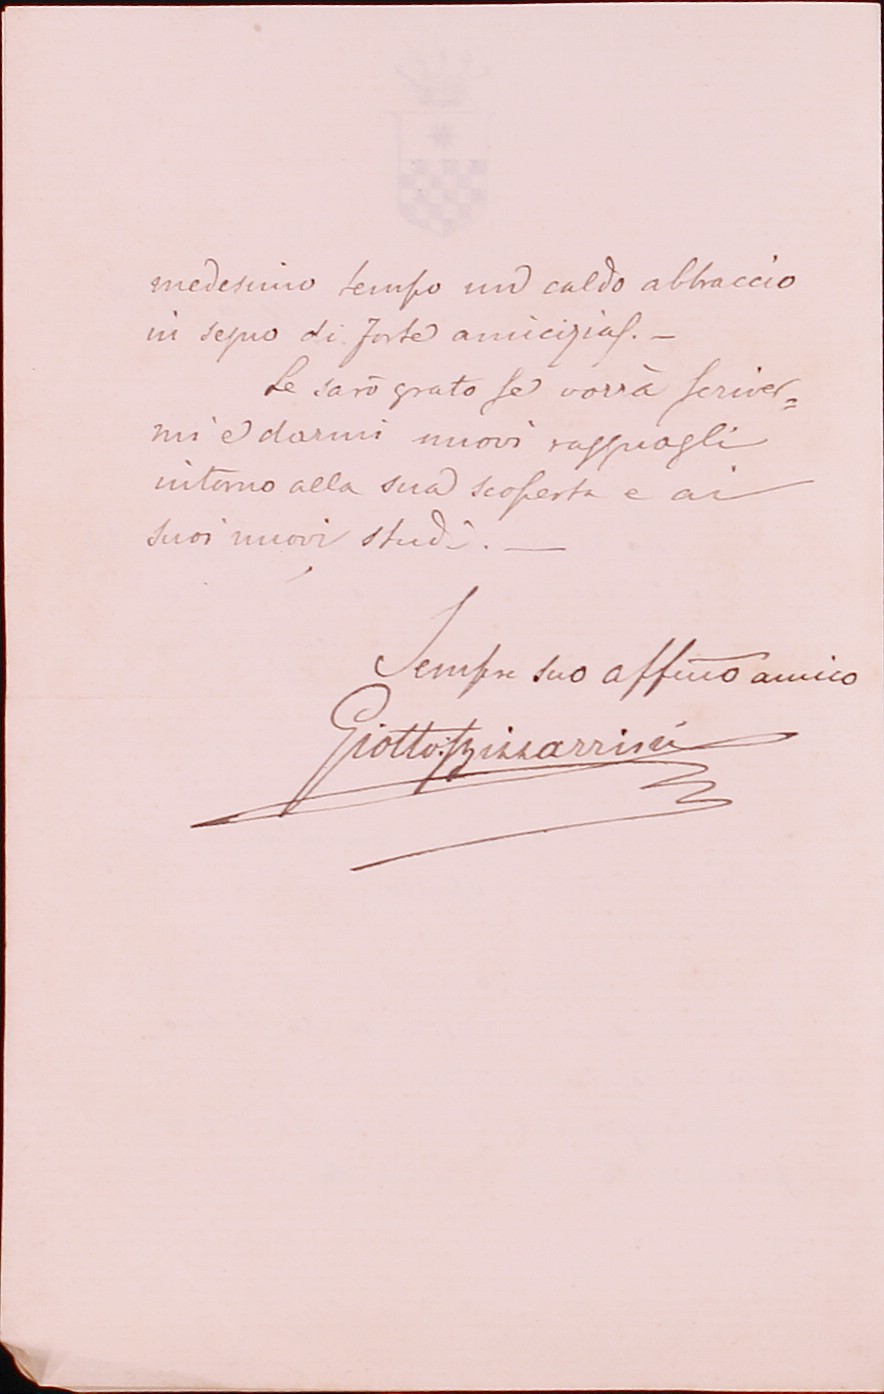 medesimo tempo un caldo abbraccio
in segno di forte amicizia. —
Le sarò grato se vorrà scriver=
mi e darmi nuovi ragguagli
intorno alla sua scoperta e ai
suoi nuovi studî. —
Sempre suo affmo amico
Giotto Bizzarrini